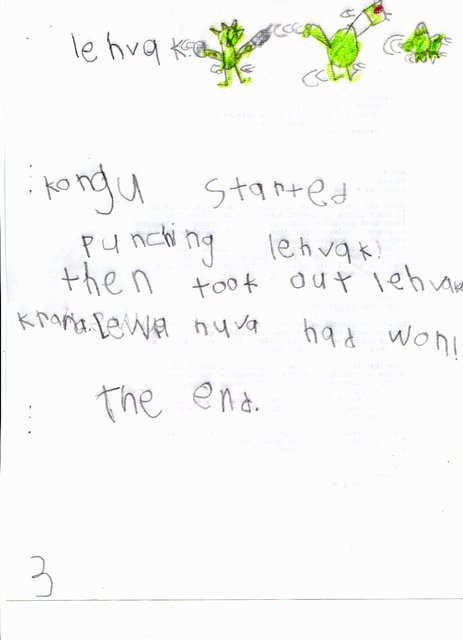 lehvak.
kongu started
punching lehvak!
then took out lehvak
krana. lewa nuva had won!
the end.
3